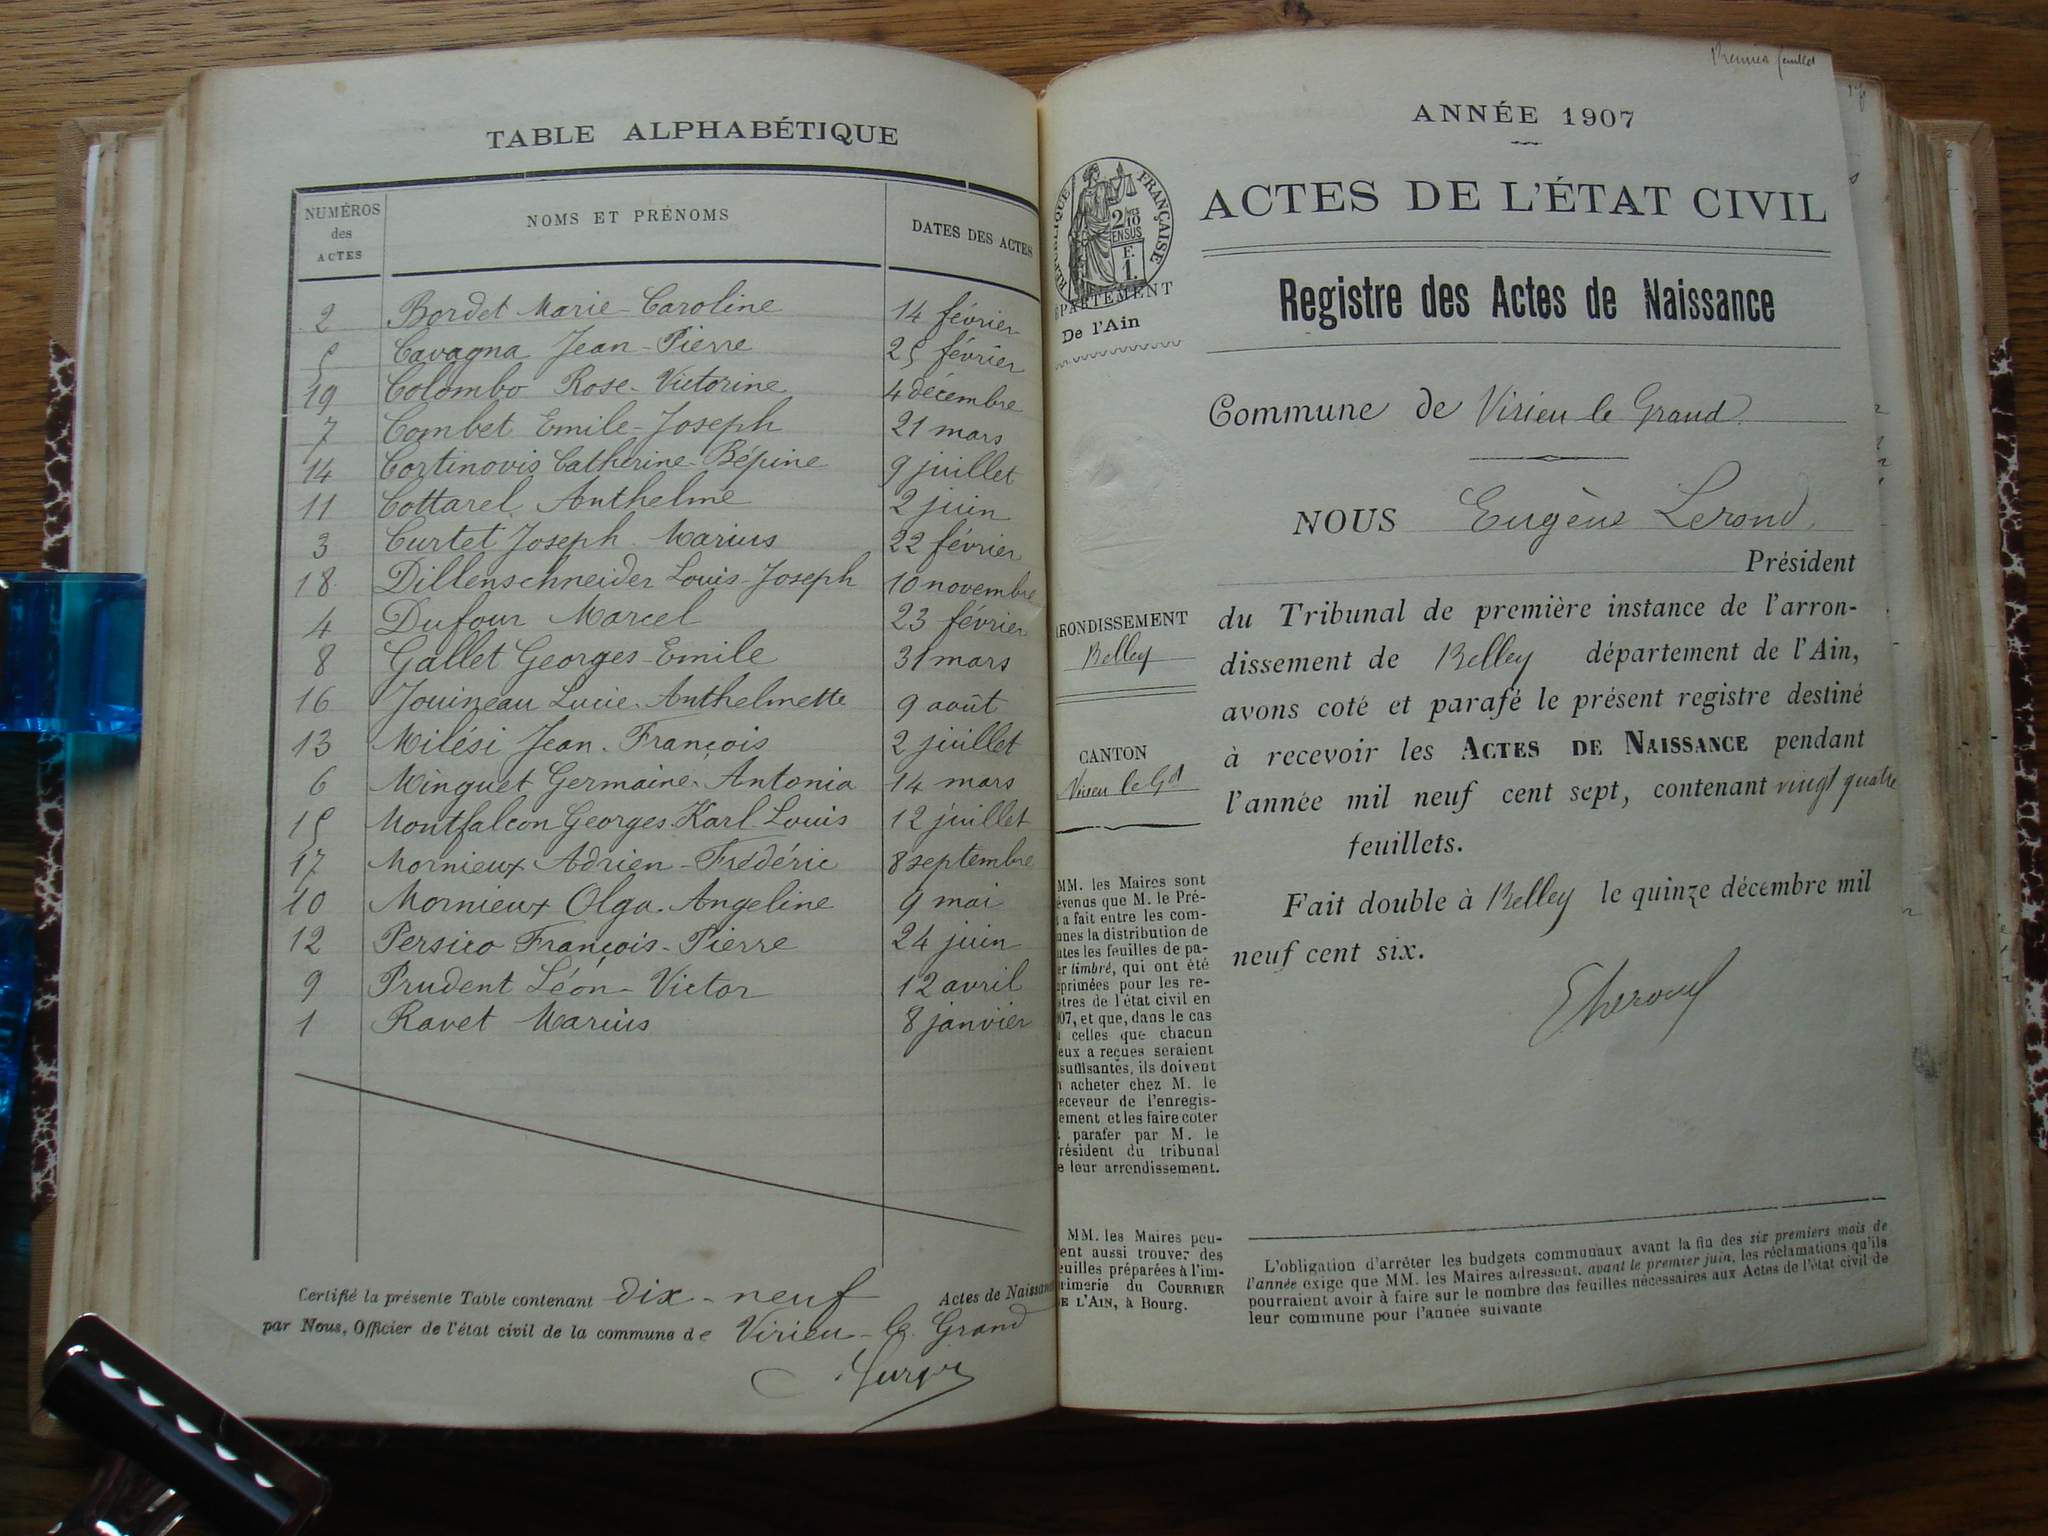 TABLE ALPHABÉTIQUE
NUMÉROS des ACTES NOMS ET PRÉNOMS DATES DES ACTES
2 Bordet Marie-Caroline 14 février
5 Cavagna Jean-Pierre 25 février
19 Colombo Rose-Victorine 4 décembre
7 Combet Emile-Joseph 21 mars
14 Cortinovis Catherine-Pépine 9 juillet
11 Cottarel Anthelme 2 juin
3 Curtet Joseph Marius 22 février
18 Dillenschneider Louis-Joseph 10 novembre
4 Dufour Marcel 23 février
8 Gallet Georges-Emile 31 mars
16 Jouineau Lucie-Anthelmette 9 août
13 Milési Jean-François 2 juillet
6 Minguet Germaine-Antonia 14 mars
15 Montfalcon Georges-Karl-Louis 12 juillet
17 Mornieux Adrien-Frédéric 8 septembre
10 Mornieux Olga-Angeline 9 mai
12 Persico François-Pierre 24 juin
9 Prudent Léon-Victor 12 avril
1 Ravet Marius 8 janvier
Certifié la présente Table contenant dix-neuf Actes de Naissance
par Nous, Officier de l'état civil de la commune de Virieu-le Grand
Premier feuillet
ANNÉE 1907
RÉPUBLIQUE FRANÇAISE
2/10 EN SUS
F.
1.
ACTES DE L'ÉTAT CIVIL
PARTEMENT
De l'Ain
Registre des Actes de Naissance
Commune de Virieu le Grand
NOUS Eugène Lerond
Président
du Tribunal de première instance de l'arron-
dissement de Belley département de l'Ain,
avons coté et parafé le présent registre destiné
à recevoir les ACTES DE NAISSANCE pendant
l'année mil neuf cent sept, contenant vingt quatre
feuillets.
Fait double à Belley le quinze décembre mil
neuf cent six.
RONDISSEMENT
Belley
CANTON
Virieu le Gd
MM. les Maires sont
évenus que M. le Pré-
t a fait entre les com-
unes la distribution de
utes les feuilles de pa-
er timbré, qui ont été
primées pour les re-
stres de l'état civil en
07, et que, dans le cas
celles que chacun
eux a reçues seraient
suffisantes, ils doivent
acheter chez M. le
eceveur de l'enregis-
ement et les faire coter
parafer par M. le
résident du tribunal
e leur arrondissement.
MM. les Maires peu-
ent aussi trouver des
euilles préparées à l'im-
rimerie du COURRIER
E L'AIN, à Bourg.
L'obligation d'arrêter les budgets communaux avant la fin des six premiers mois de
l'année exige que MM. les Maires adressent, avant le premier juin, les réclamations qu'ils
pourraient avoir à faire sur le nombre des feuilles nécessaires aux Actes de l'état civil de
leur commune pour l'année suivante